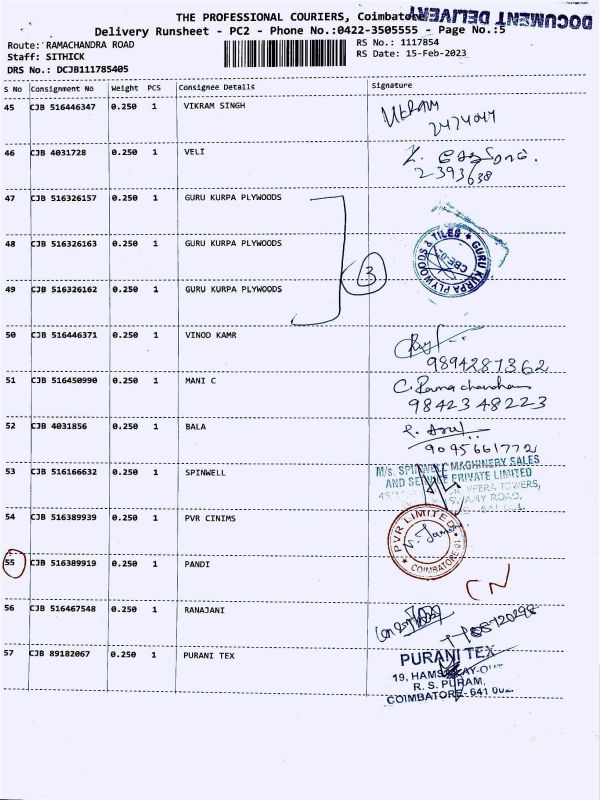 THE PROFESSIONAL COURIERS, Coimbatore
DOCUMENT DELIVERY
Delivery Runsheet - PC2 - Phone No.:0422-3505555 - Page No.:5
Route: RAMACHANDRA ROAD
RS No.: 1117854
Staff: SITHICK
RS Date: 15-Feb-2023
DRS No.: DCJB111785405
S No Consignment No Weight PCS Consignee Details Signature
45 CJB 516446347 0.250 1 VIKRAM SINGH
46 CJB 4031728 0.250 1 VELI
2393638
47 CJB 516326157 0.250 1 GURU KURPA PLYWOODS
48 CJB 516326163 0.250 1 GURU KURPA PLYWOODS
GURU KURPA PLYWOODS & TILES
3
49 CJB 516326162 0.250 1 GURU KURPA PLYWOODS
50 CJB 516446371 0.250 1 VINOD KAMR
9894287362
51 CJB 516450990 0.250 1 MANI C
C. Ramachandran
98423 48223
52 CJB 4031856 0.250 1 BALA
9095661772
53 CJB 516166632 0.250 1 SPINWELL
M/s. SPINWELL MACHINERY SALES
AND SERVICE PRIVATE LIMITED
TOWERS,
ROAD,
54 CJB 516389939 0.250 1 PVR CINIMS
PVR LIMITED
COIMBATORE
55 CJB 516389919 0.250 1 PANDI
CN
56 CJB 516467548 0.250 1 RANAJANI
57 CJB 89182067 0.250 1 PURANI TEX
PURANI TEX
R. S. PURAM,
COIMBATORE- 641